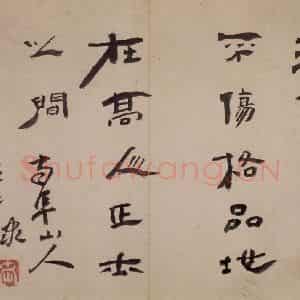 不傷格品地
在高人正士
之間
南阜山人
ShufaWang.CN